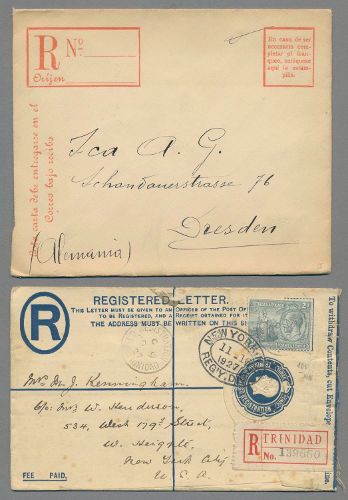 R Nº
Orijen
En caso de ser
necesario com-
pletar el fran-
queo, colóquese
aquí la estam-
pilla.
Esta carta debe entregarse en el
Correo bajo recibo
Ica A. G.
Schandauerstrasse 76
Dresden
(Alemania)
REGISTERED LETTER.
THIS LETTER MUST BE GIVEN TO AN OFFICER OF THE POST OFFICE
TO BE REGISTERED, AND A RECEIPT OBTAINED FOR IT
THE ADDRESS MUST BE WRITTEN
R
TRINIDAD
NEW YORK
1927
REG'Y. D
REGISTRATION
To withdraw Contents cut Envelope
Mrs J. Kenningham.
C/o Mrs W. Henderson,
534, West 179th Street,
W. Heights,
New York City
U.S.A.
R
TRINIDAD
No. 139650
FEE PAID.